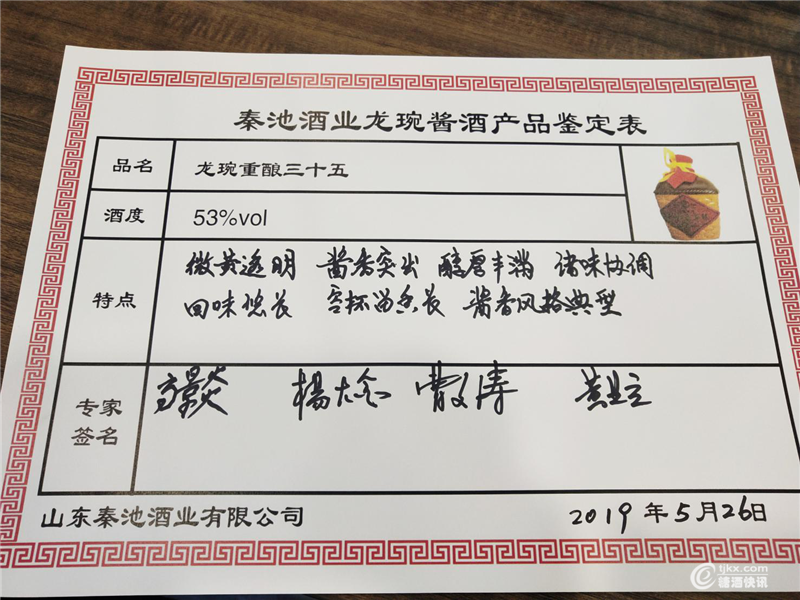 秦池酒业龙琬酱酒产品鉴定表
品名
龙琬重酿三十五
酒度
53%vol
特点
微黄透明 酱香突出 醇厚丰满 诸味协调
回味悠长 空杯留香长 酱香风格典型
专家
签名
杨大金 曹文涛
山东秦池酒业有限公司
2019年5月26日
tjkx.com
糖酒快讯